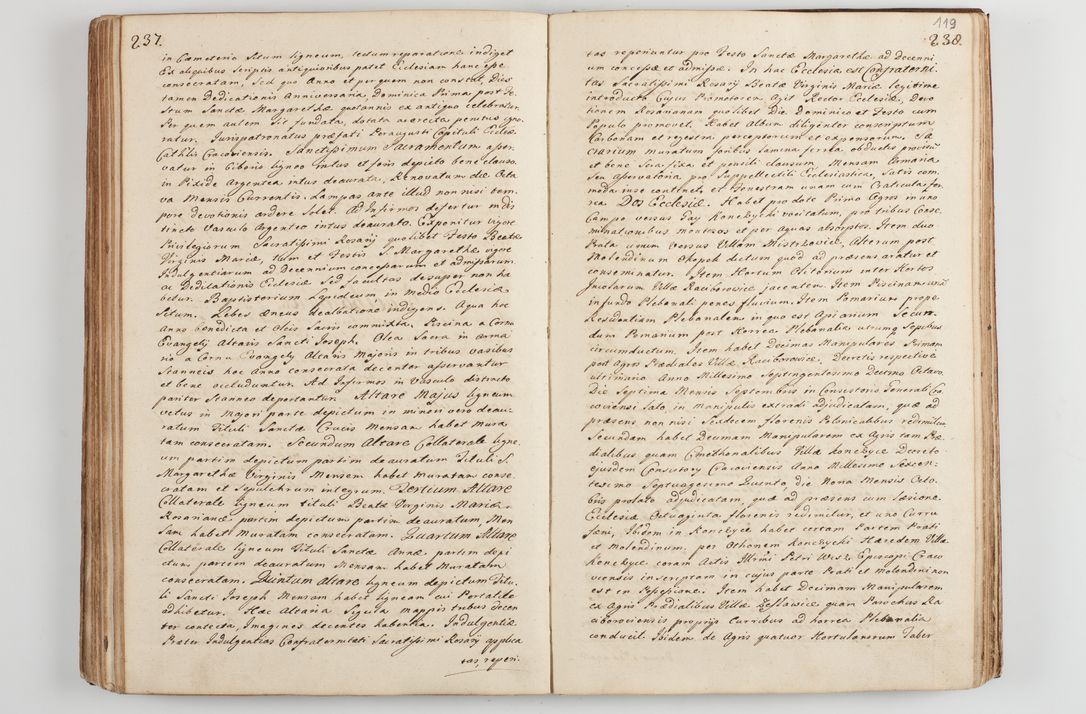 237.
in Cæmeterio Situm ligneum, tectum reparatione indiget
Ex aliquibus Scriptis antiquioribus patet Ecclesiam hanc esse
consecratam, Sed quo Anno et per quem non constat, Dies
tamen Dedicationis Anniversaria, Dominica Prima post Fe-
stum Sanctæ Margarethæ quotannis ex antiquo celebratur.
Per quem autem Sit fundata, dotata ac erecta penitus igno-
ratur. Jurispatronatus præfati Peraugusti Capituli Eccliæ
Cathlis Cracoviensis. Sanctissimum Sacramentum asser-
vatur in Ciborio ligneo intus et foris depicto bene clauso.
in Pixide Argentea intus deaurata, Renovatum die Octa
va Mensis Currentis. Lampas ante illud non nisi tem
pore devotionis ardere Solet. Ad Infirmos defertur in di
stincto Vasculo Argenteo intus deaurato. Exponitur vigore
Privilegiorum Sacratissimi Rosarij quolibet Festo Beatæ
Virginis Mariæ, tum et Festis S. Margarethæ vigore
Indulgentiarum ad Decennium concessarum et admissarum.
ac Dedicationis Ecclesiæ Sed facultas desuper non ha
betur. Baptisterium Lapideum in medio Ecclesiæ
Situm. Lebes æneus dealbatione indigens. Aqua hoc
Anno benedicta et Oleis Sacris commixta. Piscina a Cornu
Evangelij Altaris Sancti Joseph. Olea Sacra in arma
rio a Cornu Evangelij Altaris Majoris in tribus vasibus
Stanneis hoc Anno consecrata decenter asservantur
et bene occluduntur. Ad Infirmos in Vasculo distincto
pariter Stanneo deportantur. Altare Majus ligneum
vetus in Majori parte depictum in minori vero deau-
ratum Tituli Sanctæ Crucis Mensam habet mura
tam consecratam. Secundum Altare Collaterale ligne
um partim depictum partim deauratum Tituli S.
Margarethæ Virginis Mensem habet muratam conse
cratam et Sepulchrum integrum. Tertium Altare
Collaterale ligneum tituli Beatæ Virginis Mariæ
Rosarianæ partim depictum partim deauratum Men
Sam habet Muratam consecratam. Quartum Altare
Collaterale ligneum Tituli Sanctæ Annæ partim depi
ctum partim deauratum Mensam habet Muratam
consecratam. Quintum Altare ligneum depictum Titu
li Sancti Joseph Mensam habet ligneam cui Portatile
adhibetur. Hæc Altaria Sigula mappis tribus decen
ter contecta, Imagines decentes habentia. Indulgentiæ
Præter Indulgentias Confraternitati Sacratissimi Rosarij applica
tas, reperi:
119
238.
tas reperiuntur pro Festo Sanctæ Margarethæ ad Decenni
um concessæ et admissæ. In hac Ecclesia est Confraterni
tas Sacratissimi Rosarij Beatæ Virginis Mariæ legitime
introducta Cujus Promotorem Agit Rector Ecclesiæ, Devo
tionem Rosarianam quolibet Die Dominico et Festo cum
Populo promovet. Habet Album diligenter conscriptum
Carbonam et regestra perceptorum et expensorum. Sa
crarium muratum foribus Lamina ferrea obductis provisum
et bene Sera fixa et pensili clausum. Mensam Armaria
Seu Asservatoria pro Suppellectili Ecclesiastica, Satis com
moda inse continet, et Fenestram unam cum Craticula fer
rea. Dos Ecclesiæ. Habet pro dote Primo Agros in uno
Campo versus Gay Konczycki vocitatum, pro tribus Conse
minationibus montosos et per Aquas absorptos. Item duo
Prata unum versus Villam Mistrzowice, Alterum post
Molendinum Chopek dictum quod ad præsens aratur et
conseminatur. Item Hortum Olitorium inter Hortos
Incolarum Villæ Raciborowice jacentem. Item Piscinam unam
in fundo Plebanali penes fluvium. Item Pomarium prope
Residentiam Plebanalem in quo est Apiarium Secun-
dum Pomarium post Horrea Plebanalia utrumq Sepibus
circumductum. Item habet Decimas Manipulares Primam
post Agros Prædiales Villæ Raciborowice, Decretis respective
ultimario Anno Millesimo Septingentesimo Decimo Octavo,
Die Septima Mensis Septembris in Consistorio Generali Cra
coviensi Lato, in manipulis extradi adjudicatam, quæ ad
præsens non nisi Sexdecem florenis Polonicalibus redimitur
Secundam habet Decimam Manipularem ex Agris tam Præ-
dialibus quam Cmethonalibus Villæ Konczyce Decreto
ejusdem Consistorij Cracoviensis Anno Millesimo Sexcen-
tesimo Septuagesimo Quinto die Nona Mensis Octo-
bris prolato adjudicatam quæ ad præsens cum Læsione
Ecclesiæ Octuaginta florenis redimitur, et uno Curru
Fæni, Ibidem in Konczyce habet certam Partem Prati
et Molendinum, per Othonem Konczycki Hæredem Villæ
Konczyce coram Actis Illrmi Petri Wysz Episcopi Craco
viensis inscriptam in cujus parte Prati et Molendini non
est in Possessione. Item habet Decimam Manipularem
ex Agris Prædialibus Villæ Zesławice quam Parochus Ra
ciboroviensis proprijs Curribus ad horrea Plebanalia
conducit. Itidem de Agris quatuor Hortulanorum Taber